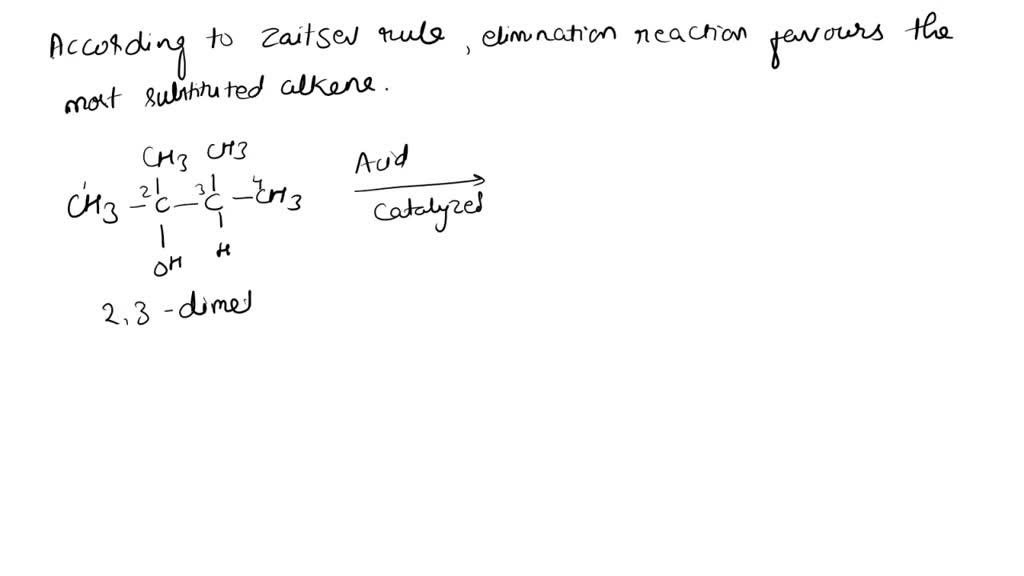 According to Zaitsev rule, elimination reaction favours the
most substituted alkene.
CH3 CH3
1 2 3 4
CH3 - C - C - CH3
OH H
Acid
Catalyzed
2,3 - dimet